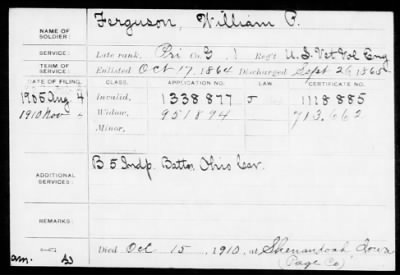 NAME OF SOLDIER: Ferguson, William P.
SERVICE: Late rank, Pri Co. G, 1 Reg't U.S. Vet Vol Eng
TERM OF SERVICE: Enlisted Oct 17, 1864 Discharged Sept 26, 1865
DATE OF FILING. CLASS. APPLICATION NO. LAW CERTIFICATE NO.
1905 Aug 4 Invalid, 1338877 J 1118885
1910 Nov Widow, 951894 713,662
Minor,
ADDITIONAL SERVICES: B 5 Indp. Battn Ohio Cav.
REMARKS:
Died Oct 15, 1910, at Shenandoah Iowa
(Page Co)